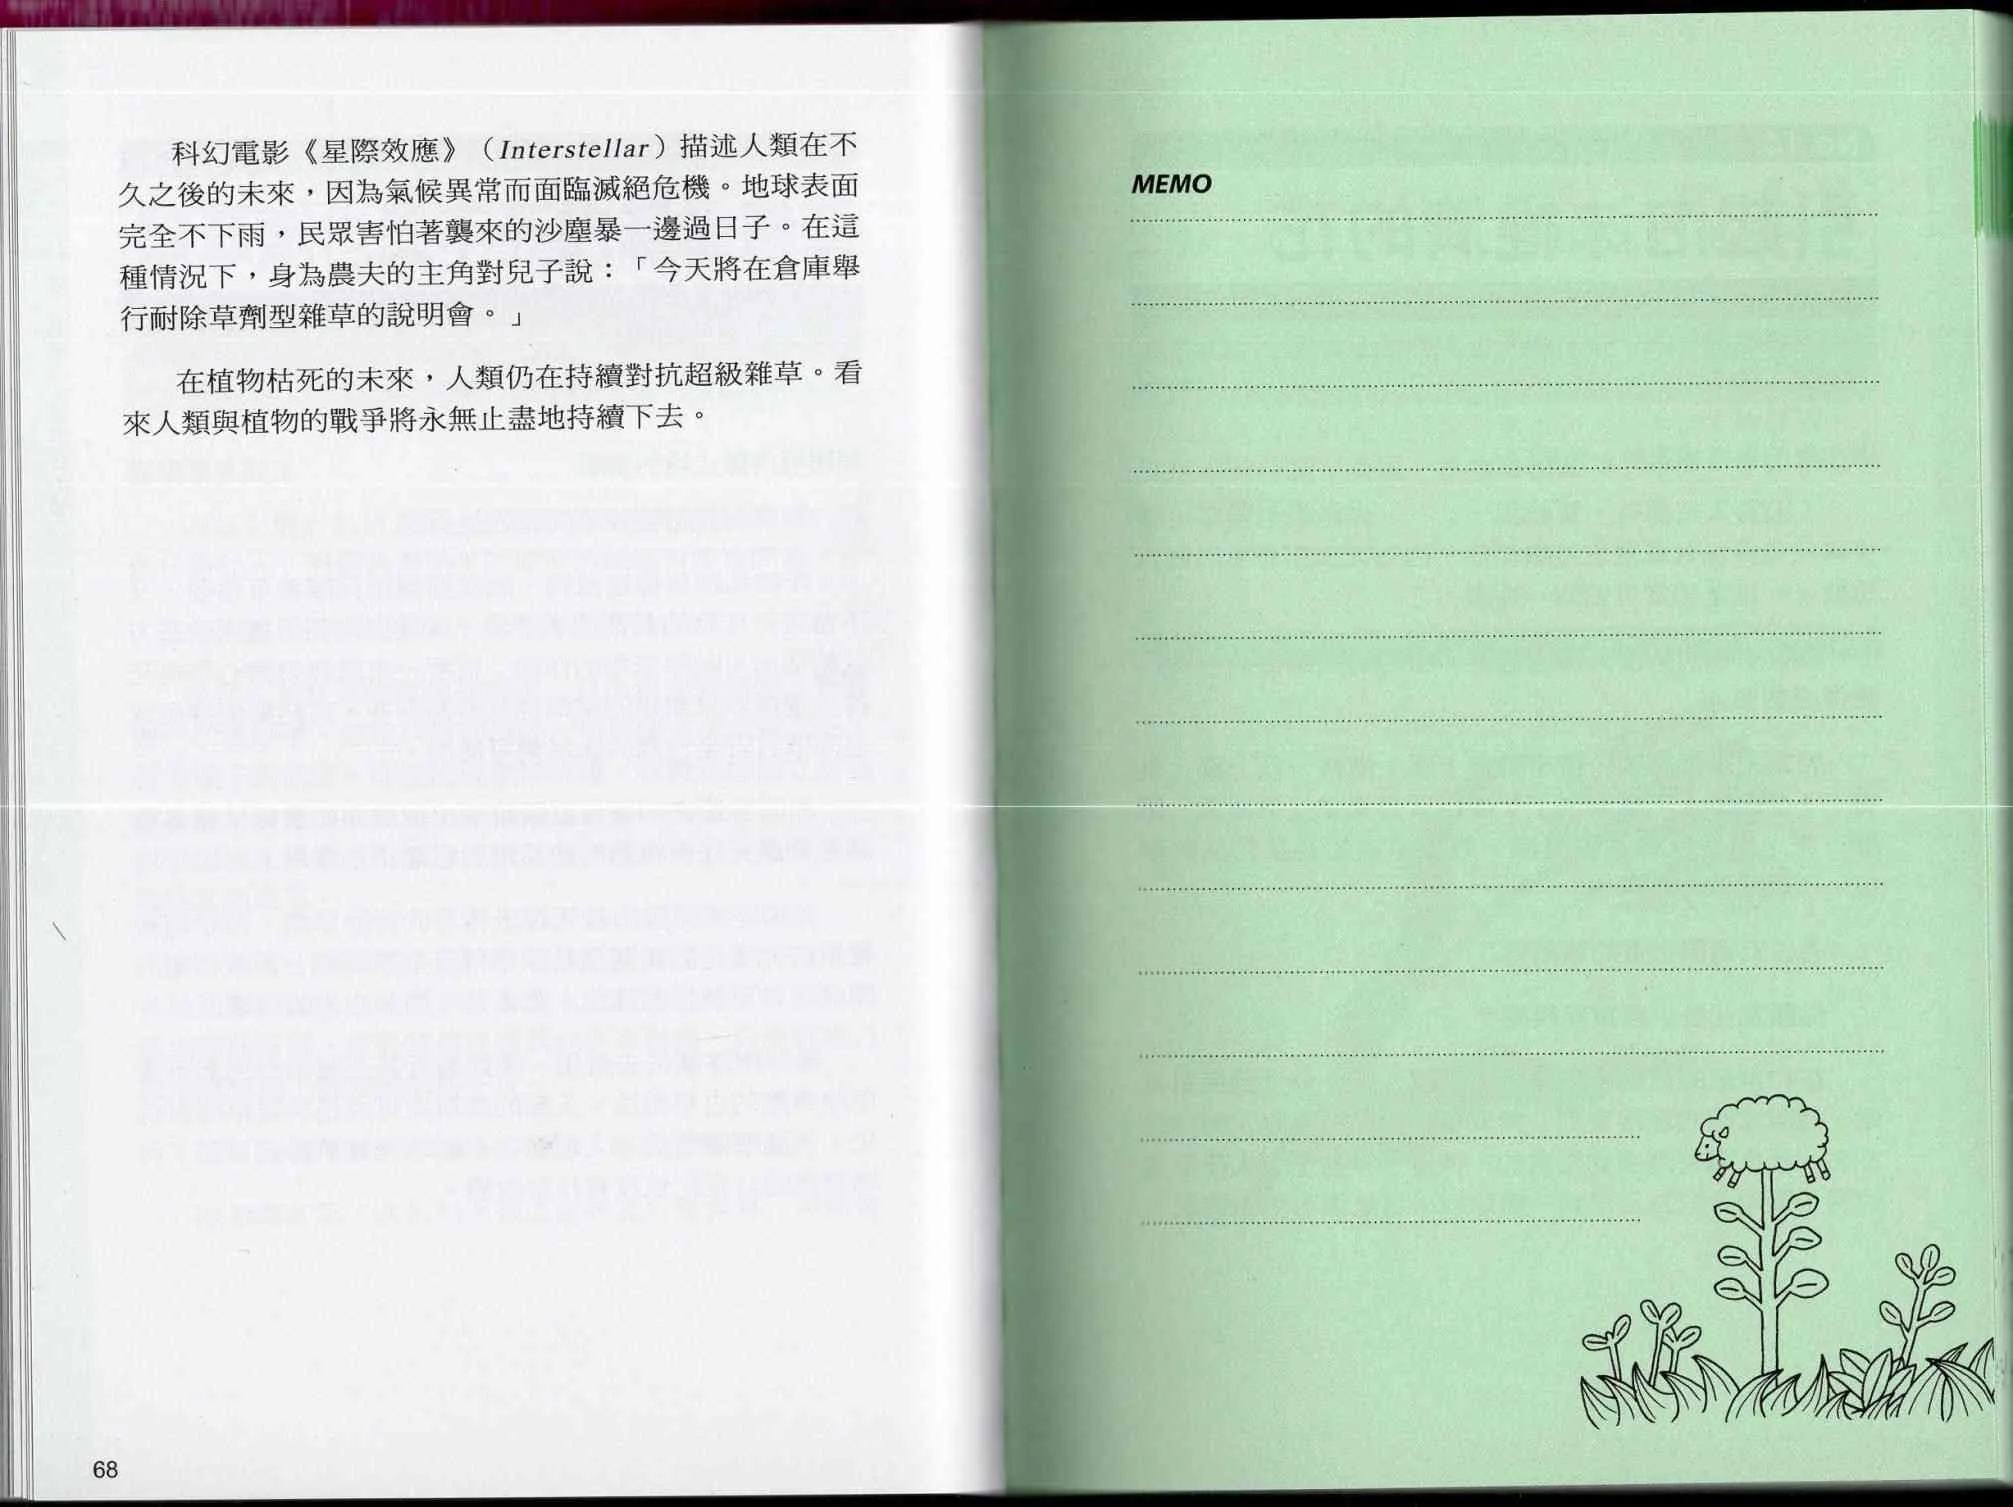 科幻電影《星際效應》（Interstellar）描述人類在不
久之後的未來，因為氣候異常而面臨滅絕危機。地球表面
完全不下雨，民眾害怕著襲來的沙塵暴一邊過日子。在這
種情況下，身為農夫的主角對兒子說：「今天將在倉庫舉
行耐除草劑型雜草的說明會。」
在植物枯死的未來，人類仍在持續對抗超級雜草。看
來人類與植物的戰爭將永無止盡地持續下去。
68
MEMO